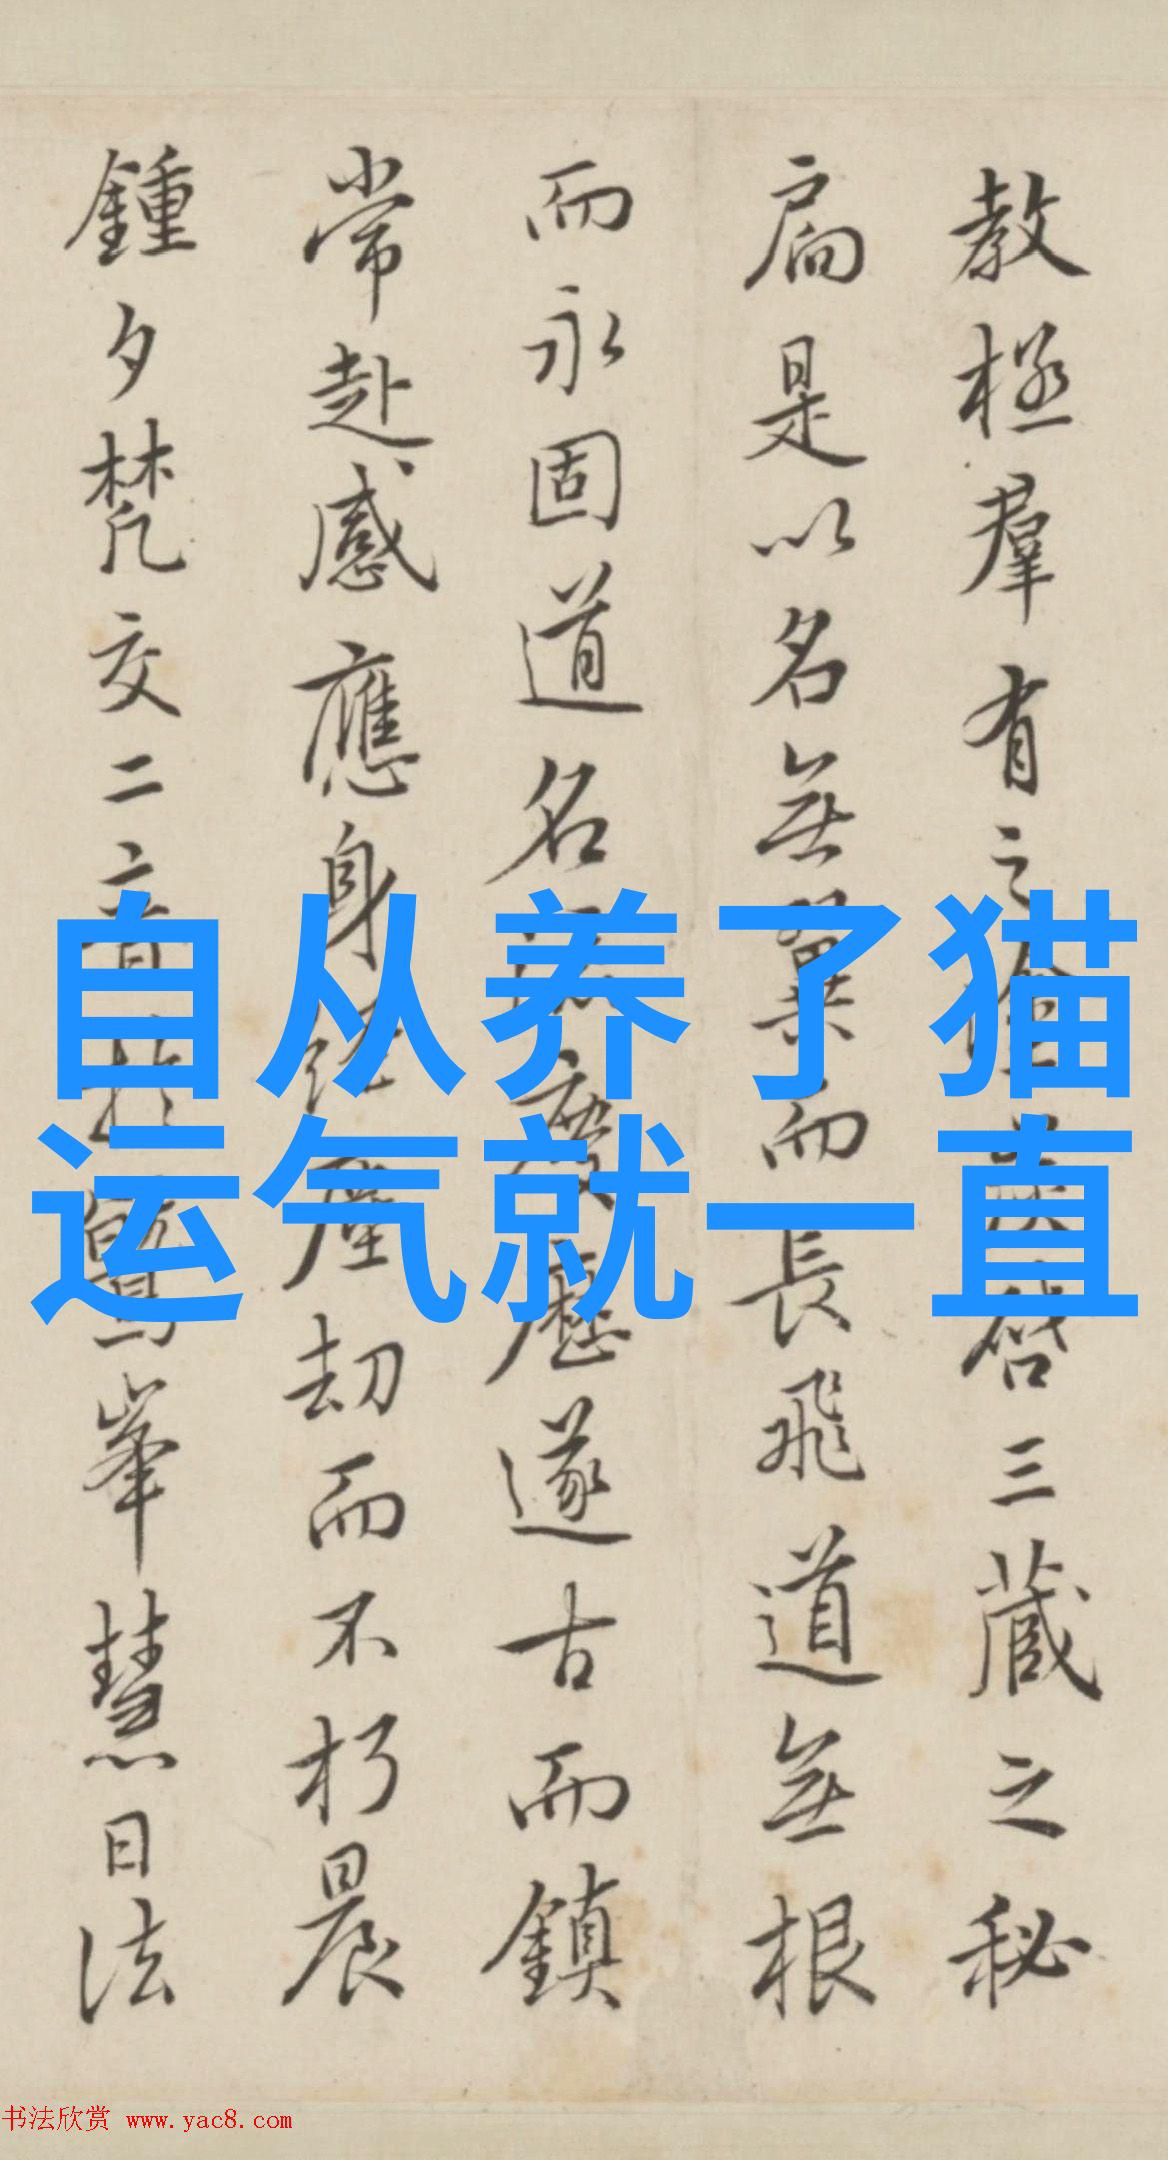 教拯羣有之塗炭啓三藏之秘
扃是以名無翼而長飛道無根
而永固道名流慶歷遂古而鎮
常赴感應身經塵劫而不朽晨
鍾夕梵交二音於鷲峯慧日法
自从养了猫
运气就一直
书法欣赏 www.yac8.com